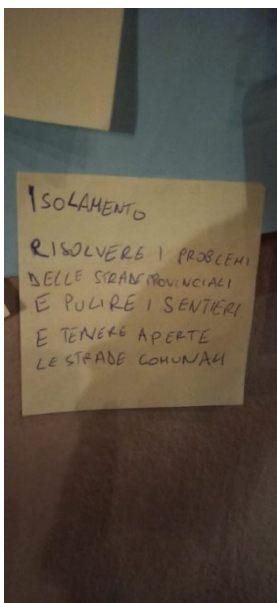 ISOLAMENTO
RISOLVERE I PROBLEMI
DELLE STRADE PROVINCIALI
E PULIRE I SENTIERI
E TENERE APERTE
LE STRADE COMUNALI